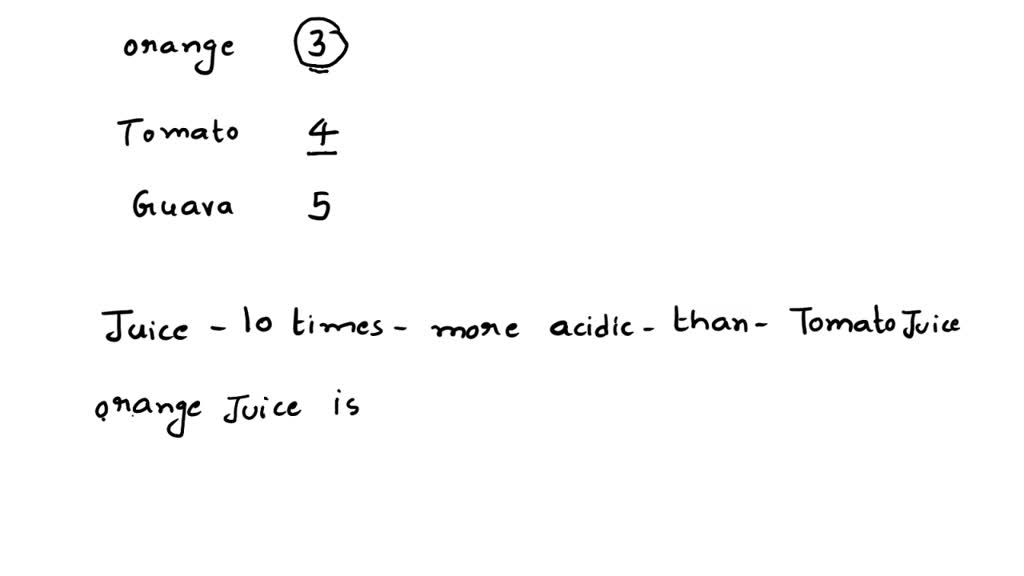 orange 3
Tomato 4
Guava 5
Juice - 10 times - more acidic - than - Tomato Juice
orange Juice is